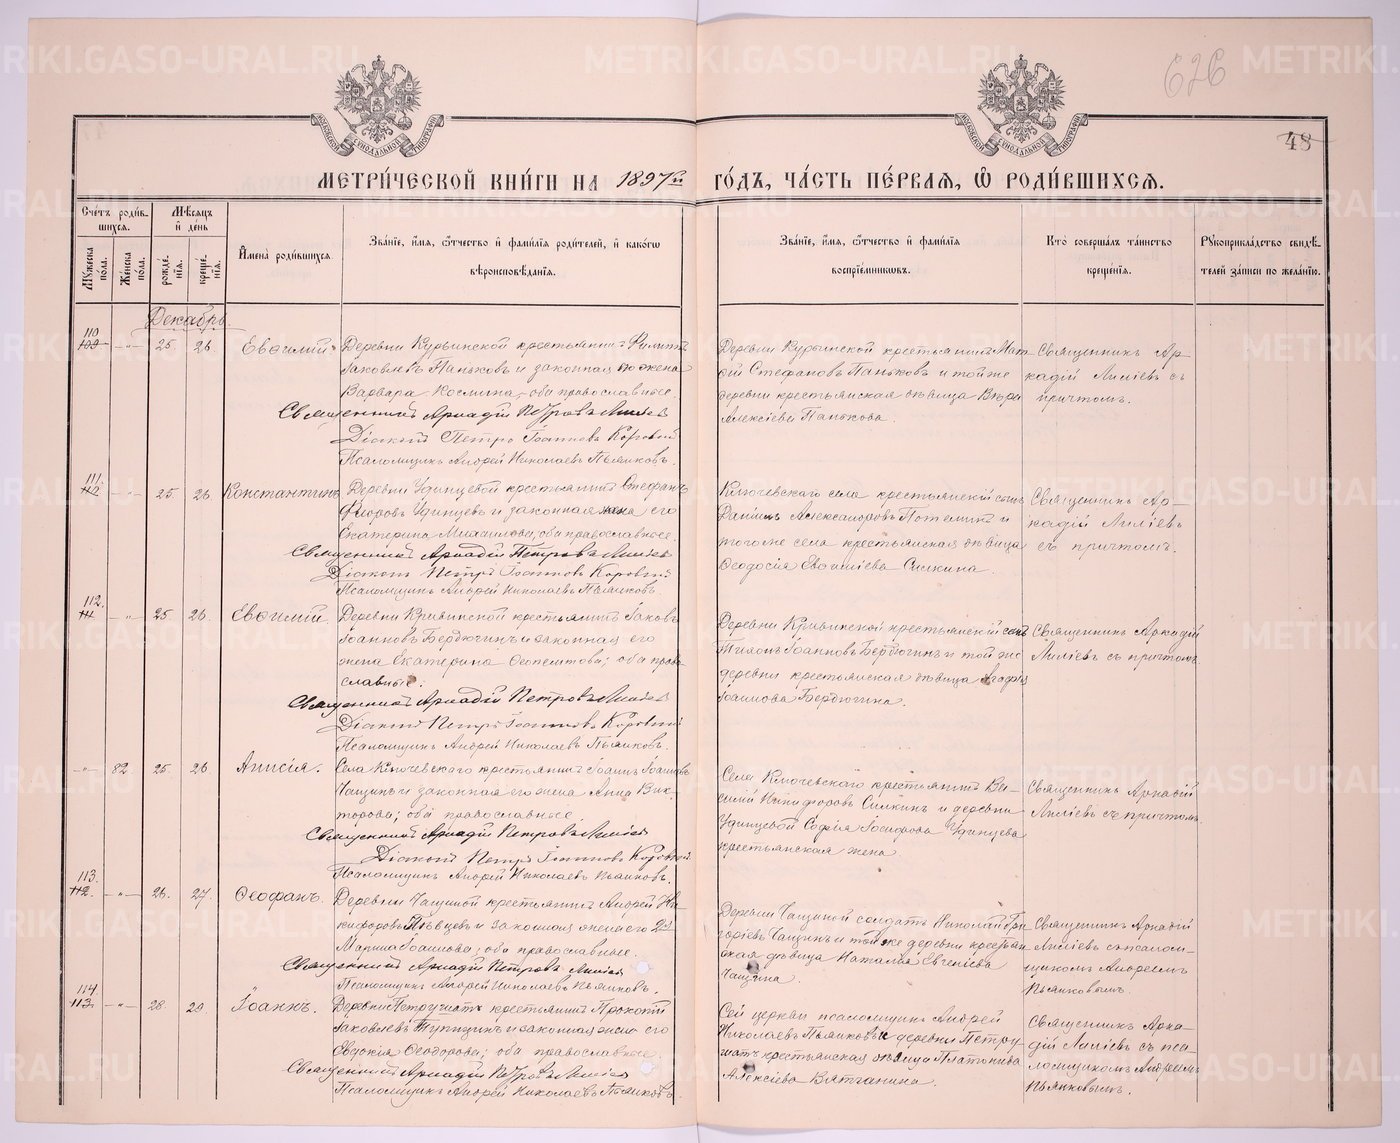 626
48
МОСКОВСКОЙ СѴНОДАЛЬНОЙ ТИПОГРАФІИ
МОСКОВСКОЙ СѴНОДАЛЬНОЙ ТИПОГРАФІИ
МЕТРИ́ЧЕСКОЙ КНИ́ГИ НА 1897й ГО́ДЪ, ЧА́СТЬ ПЕ́РВАЯ, Ѽ РОДИ́ВШИХСЯ.
Сче́тъ роди́в-
шихся.
Мѣ́сяцъ
и́ де́нь
Му́жеска по́ла.
Же́нска по́ла.
рожде́нїя.
креще́нїя.
И҆мена̀ роди́вшихся.
Зва́нїе, и҆́мя, ѻ҆́тчество и҆ фами́лїя роди́телей, и҆ како́гѡ
вѣроисповѣ́данїя.
Зва́нїе, и҆́мя, ѻ҆́тчество и҆ фами́лїя
воспрїе́мниковъ.
Кто̀ соверша́лъ та́инство
креще́нїя.
Рꙋкоприкла́дство свидѣ́-
телей за́писи по жела́нїю.
Декабрь.
110
109 -"- 25 26 Евѳимій
Деревни Курьинской крестьянинъ Филиппъ
Іаковлевъ Паньковъ и законная его жена
Варвара Космина, оба православные.
Священникъ Аркадій Петровъ Лиліевъ
Діаконъ Петръ Іоанновъ Коровинъ
Псаломщикъ Андрей Николаевъ Пьянковъ.
Деревни Курьинской крестьянинъ Мат-
ѳій Стефановъ Паньковъ и тойже
деревни крестьянская дѣвица Вѣра
Алексіева Панькова.
Священникъ Ар-
кадій Лиліевъ съ
причтомъ.
111.
110 -"- 25. 26 Константинъ
Деревни Удинцевой крестьянинъ Стефанъ
Флоровъ Удинцевъ и законная жена его
Екатерина Михаилова; оба православные.
Священникъ Аркадій Петровъ Лиліевъ
Діаконъ Петръ Іоанновъ Коровинъ
Псаломщикъ Андрей Николаевъ Пьянковъ.
Ключевскаго села крестьянскій сынъ
Даніилъ Александровъ Потепинъ и
тогоже села крестьянская дѣвица
Ѳеодосія Евѳиміева Силкина.
Священникъ Ар-
кадій Лиліевъ
съ причтомъ.
112.
111 -"- 25. 26. Евѳимій
Деревни Кривинской крестьянинъ Іаковъ
Іоанновъ Бердюгинъ и законная его
жена Екатерина Ѳеопемптова; оба право-
славные.
Священникъ Аркадій Петровъ Лиліевъ
Діаконъ Петръ Іоанновъ Коровинъ
Псаломщикъ Андрей Николаевъ Пьянковъ.
Деревни Кривинской крестьянскій сынъ
Тихонъ Іоанновъ Бердюгинъ и той же
деревни крестьянская дѣвица Агафія
Іоаннова Бердюгина.
Священникъ Аркадій
Лиліевъ съ причтомъ.
-"- 82 25. 26. Анисія.
Села Ключевскаго крестьянинъ Іоаннъ Іоанновъ
Чащинъ и законная его жена Анна Вик-
торова; оба православные.
Священникъ Аркадій Петровъ Лиліевъ
Діаконъ Петръ Іоанновъ Коровинъ
Псаломщикъ Андрей Николаевъ Пьянковъ.
Села Ключевскаго крестьянинъ Ва-
силій Никифоровъ Силкинъ и деревни
Удинцевой Софія Іосифова Удинцева
крестьянская жена
Священникъ Аркадій
Лиліевъ съ причтомъ.
113.
112. -"- 26. 27. Ѳеофанъ.
Деревни Чащиной крестьянинъ Андрей Ни-
кифоровъ Пѣвцевъ и законная жена его
Марина Іоаннова; оба православные.
Священникъ Аркадій Петровъ Лиліевъ
Псаломщикъ Андрей Николаевъ Пьянковъ.
Деревни Чащиной солдатъ Николай Гри-
горіевъ Чащинъ и той же деревни крестьян-
ская дѣвица Наталія Евгеніева
Чащина.
Священникъ Аркадій
Лиліевъ съ псалом-
щикомъ Андреемъ
Пьянковымъ.
114.
113. -"- 28. 29. Іоаннъ.
Деревни Петрушатъ крестьянинъ Прокопій
Іаковлевъ Тупицинъ и законная жена его
Евдокія Ѳеодорова; оба православные.
Священникъ Аркадій Петровъ Лиліевъ
Псаломщикъ Андрей Николаевъ Пьянковъ.
Сей церкви псаломщикъ Андрей
Николаевъ Пьянковъ и деревни Петру-
шатъ крестьянская дѣвица Платонида
Алексіева Вятчанина.
Священникъ Арка-
дій Лиліевъ съ пса-
ломщикомъ Андреемъ
Пьянковымъ.
METRIKI.GASO-URAL.RU